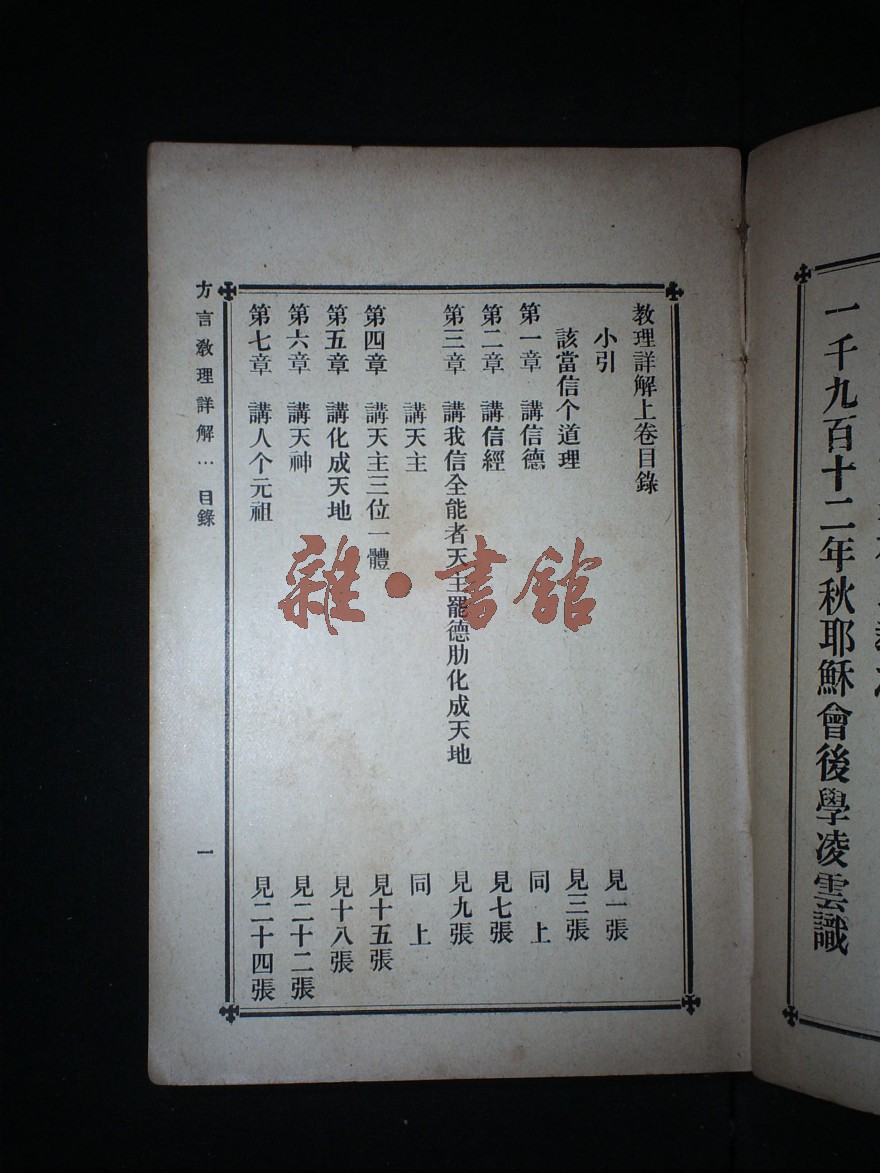 一千九百十二年秋耶穌會後學凌雲識
教理詳解上卷目錄
小引 見一張
該當信个道理 見三張
第一章 講信德 見七張
第二章 講信經 同上
第三章 講我信全能者天主罷德肋化成天地 見九張
講天主 同上
第四章 講天主三位一體 見十五張
第五章 講化成天地 見十八張
第六章 講天神 見二十二張
第七章 講人个元祖 見二十四張
方言教理詳解… 目錄 一
雜·書館